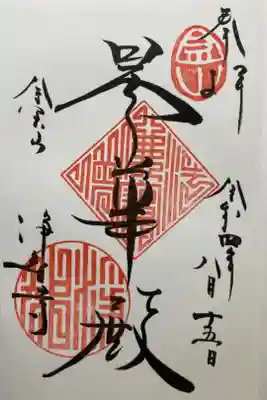 奉拝
令和四年八月十五日
曇華殿
金宝山
浄智寺